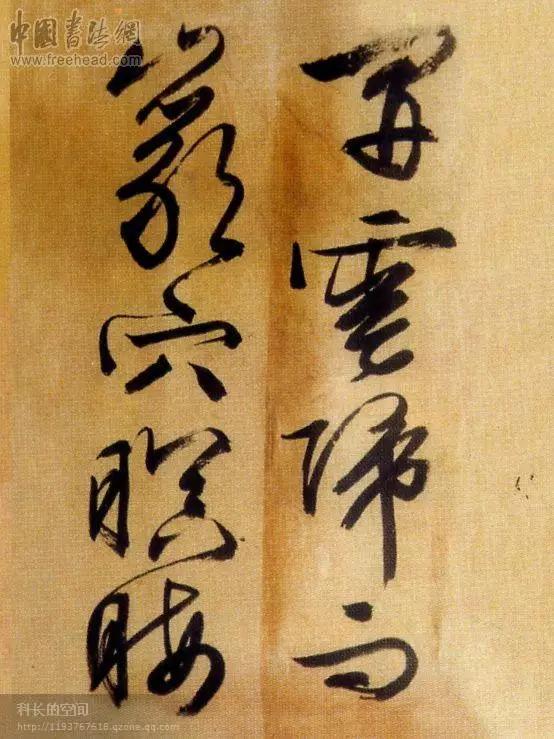 中國書法網
www.freehead.com
開雲歸而
巖穴暝晦
科长的空间
http://1193767618.qzone.qq.com/